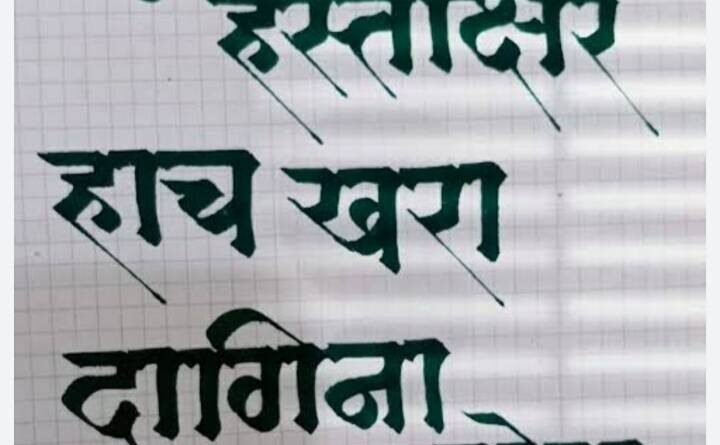 हस्ताक्षर
हाच खरा
दागिना